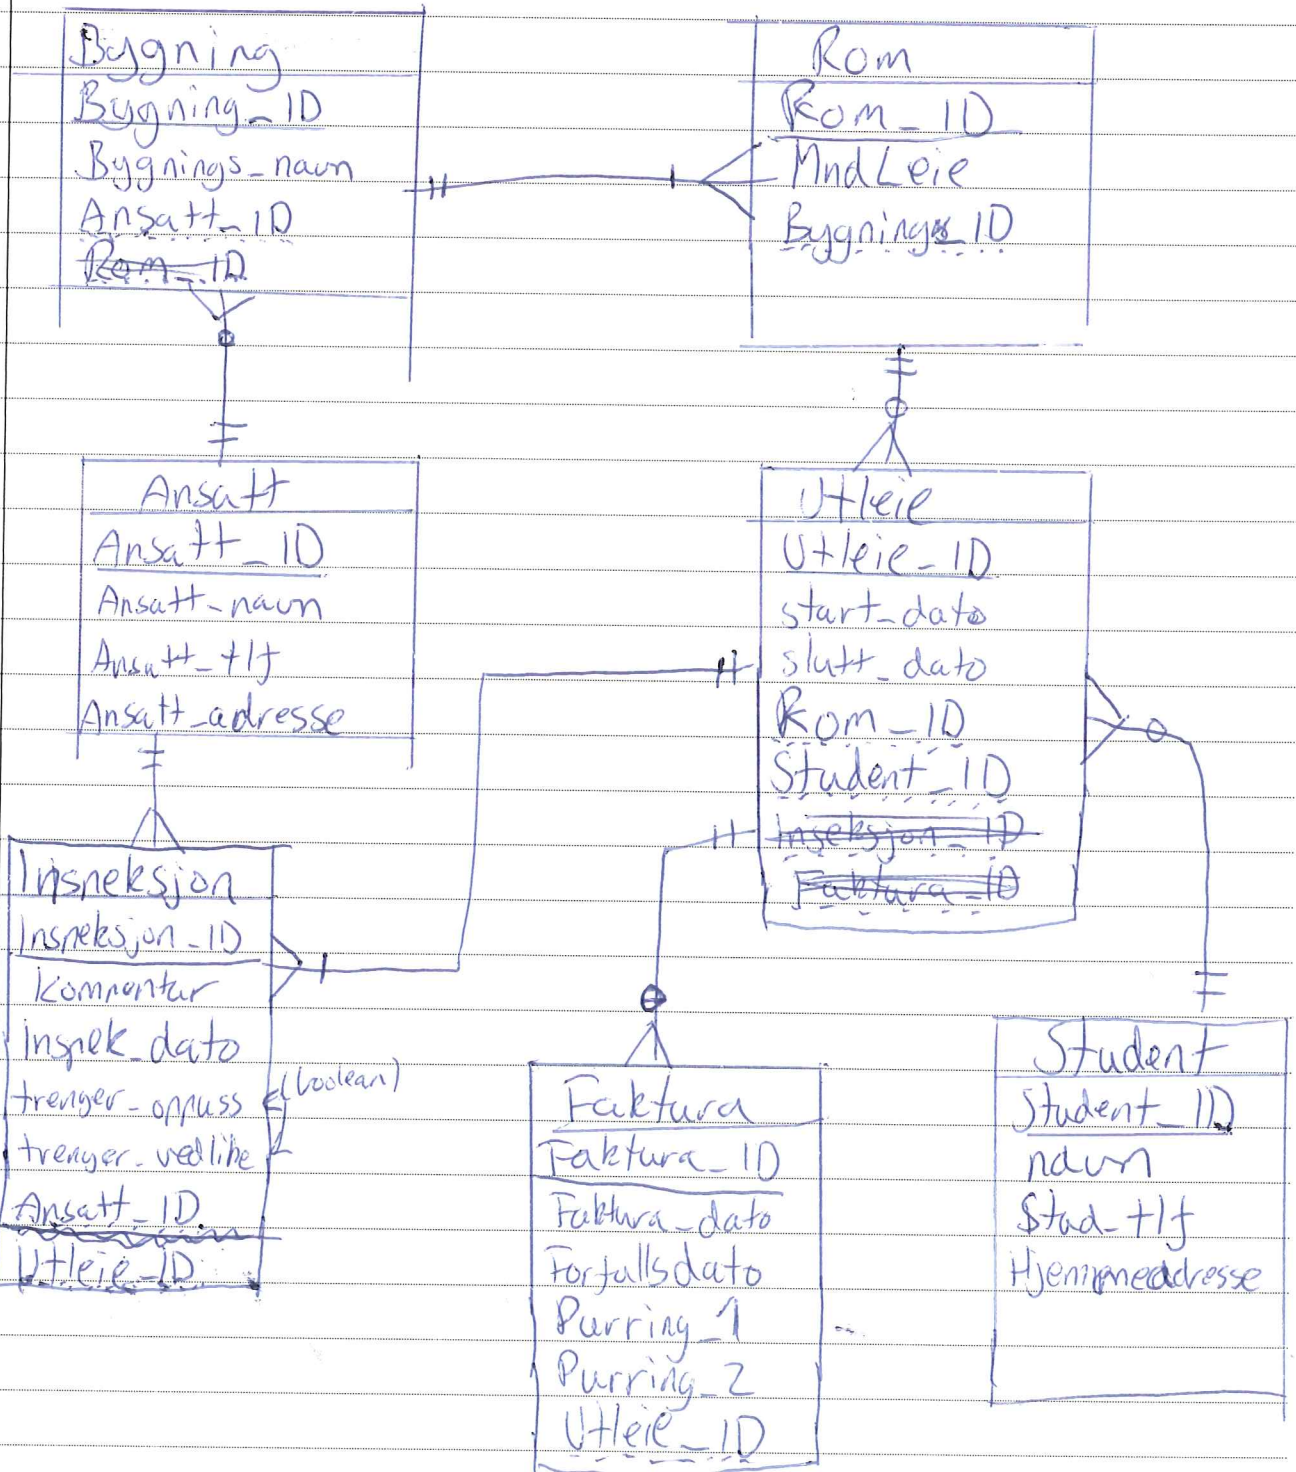 Bygning
Bygning_ID
Bygnings_navn
Ansatt_ID
Rom_ID
Rom
Rom_ID
MndLeie
Bygnings_ID
Ansatt
Ansatt_ID
Ansatt_navn
Ansatt_tlf
Ansatt_adresse
Utleie
Utleie_ID
start_dato
slutt_dato
Rom_ID
Student_ID
Inseksjon_ID
Faktura_ID
Inspeksjon
Inspeksjon_ID
Kommentar
Inspek_dato
trenger_oppuss (boolean)
trenger_vedlihe
Ansatt_ID
Utleie_ID
Faktura
Faktura_ID
Faktura_dato
Forfallsdato
Purring_1
Purring_2
Utleie_ID
Student
Student_ID
navn
Stud_tlf
Hjemmeadresse